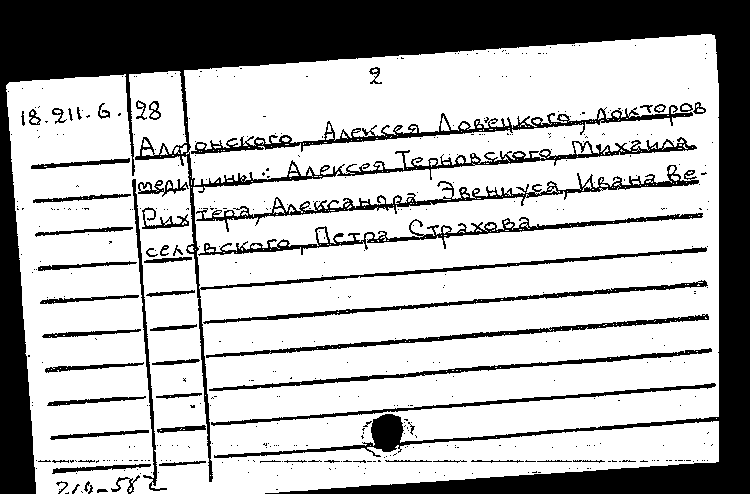 2
18.211.6. 28
Алфонского, Алексея Ловецкого; докторов
медицины: Алексея Терновского, Михаила
Рихтера, Александра Эвениуса, Ивана Ве-
селовского, Петра Страхова.
210-582